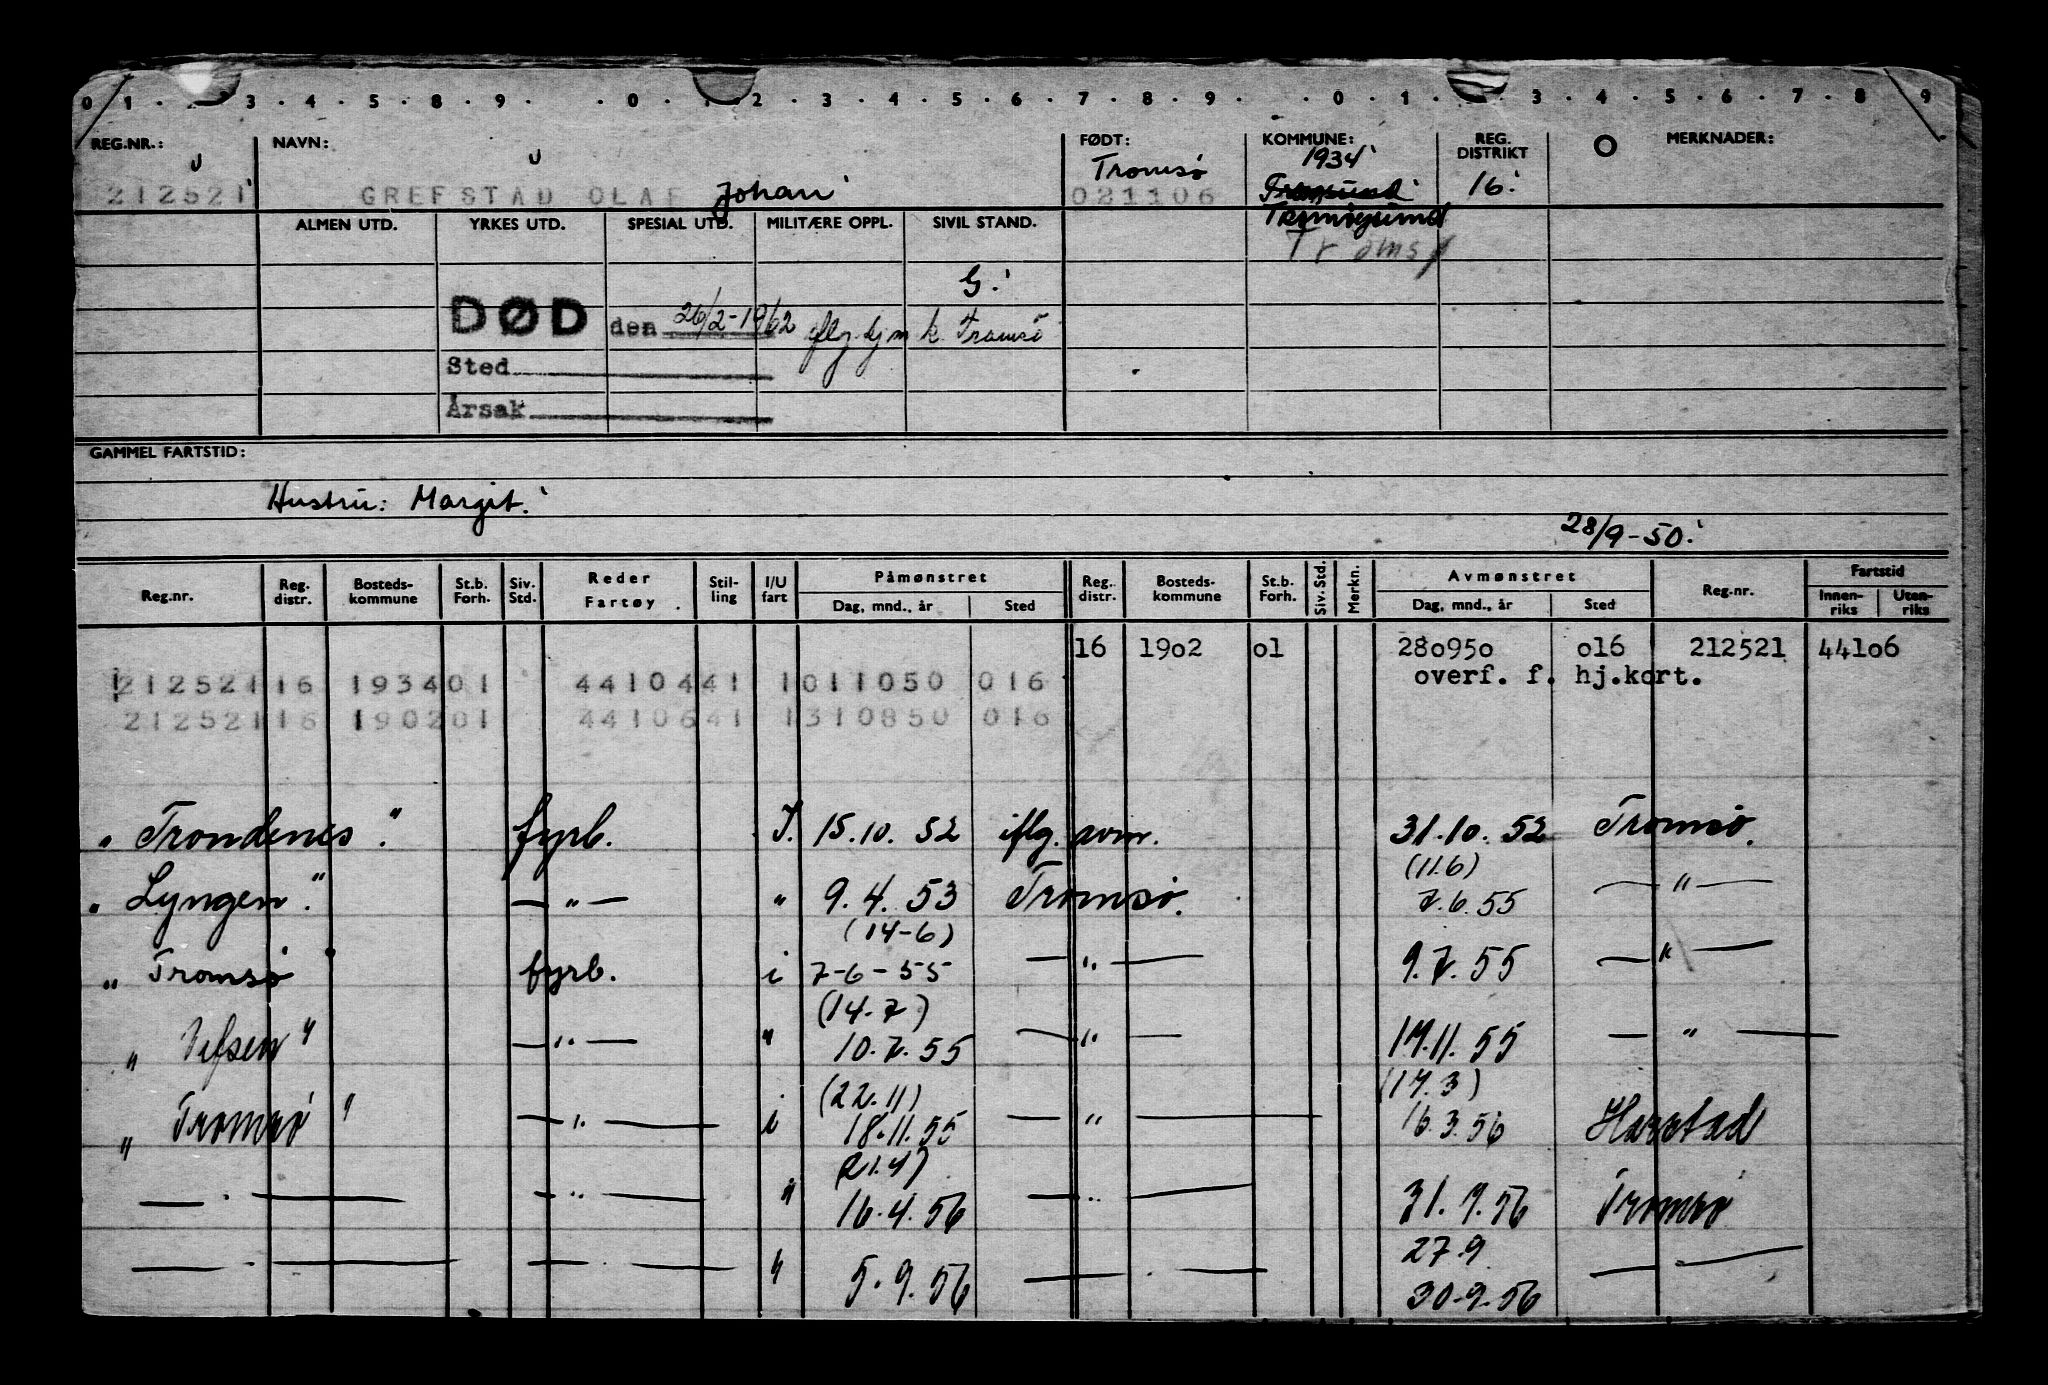 0 1 · · 3 · 4 · 5 · 8 · 9 · · 0 · 1 · 2 · 3 · 4 · 5 · 6 · 7 · 8 · 9 · · 0 · 1 · · 3 · 4 · 5 · 6 · 7 · 8 · 9
REG.NR.: NAVN: FØDT: KOMMUNE: REG. DISTRIKT O MERKNADER:
212521 GREFSTAD OLAF Johan Tromsø 021106 1934 16
Tromsøysund
Tromsø
ALMEN UTD. YRKES UTD. SPESIAL UTD. MILITÆRE OPPL. SIVIL STAND.
G.
DØD den 26/2-1962 iflg. hjm k. Tromsø
Sted
Årsak
GAMMEL FARTSTID:
Hustru: Margit.
28/9-50.
Reg.nr. Reg. distr. Bosteds-kommune St.b. Forh. Siv. Std. Reder Fartøy Stil-ling I/U fart Påmønstret Dag, mnd., år Sted Reg. distr. Bosteds-kommune St.b. Forh. Siv. Std. Merkn. Avmønstret Dag, mnd., år Sted Reg.nr. Fartstid Innen-riks Uten-riks
16 19o2 o1 28o95o o16 212521 441o6
overf. f. hj.kort.
212521 16 1934 01 44104 41 1 011050 016
212521 16 1902 01 44106 41 1 310850 016
" Trondenes " fyrb. I. 15.10.52 iflg. avm. 31.10.52 Tromsø.
(11.6)
" Lyngen " — " — " 9.4.53 Tromsø. 7.6.55 — " —
(14-6)
" Tromsø fyrb. i 7-6-55 — " — 9.7.55 — " —
(14-7)
" Vefsen " — " — " 10.7.55 — " — 17.11.55 — " —
(22.11) (17.3)
" Tromsø " — " — i 18.11.55 — " — 16.3.56 Harstad
(21.4)
— " — — " — " 16.4.56 — " — 31.9.56 Tromsø
27.9
— " — — " — " 5.9.56 — " — 30.9.56 — " —